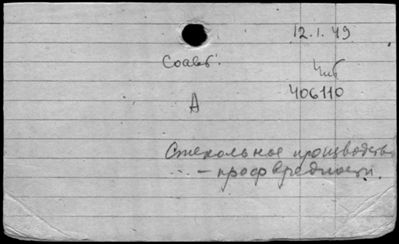 12.1.49
Соавт.
Чит
406110
А
Стекольное производство
... – проф вредности.